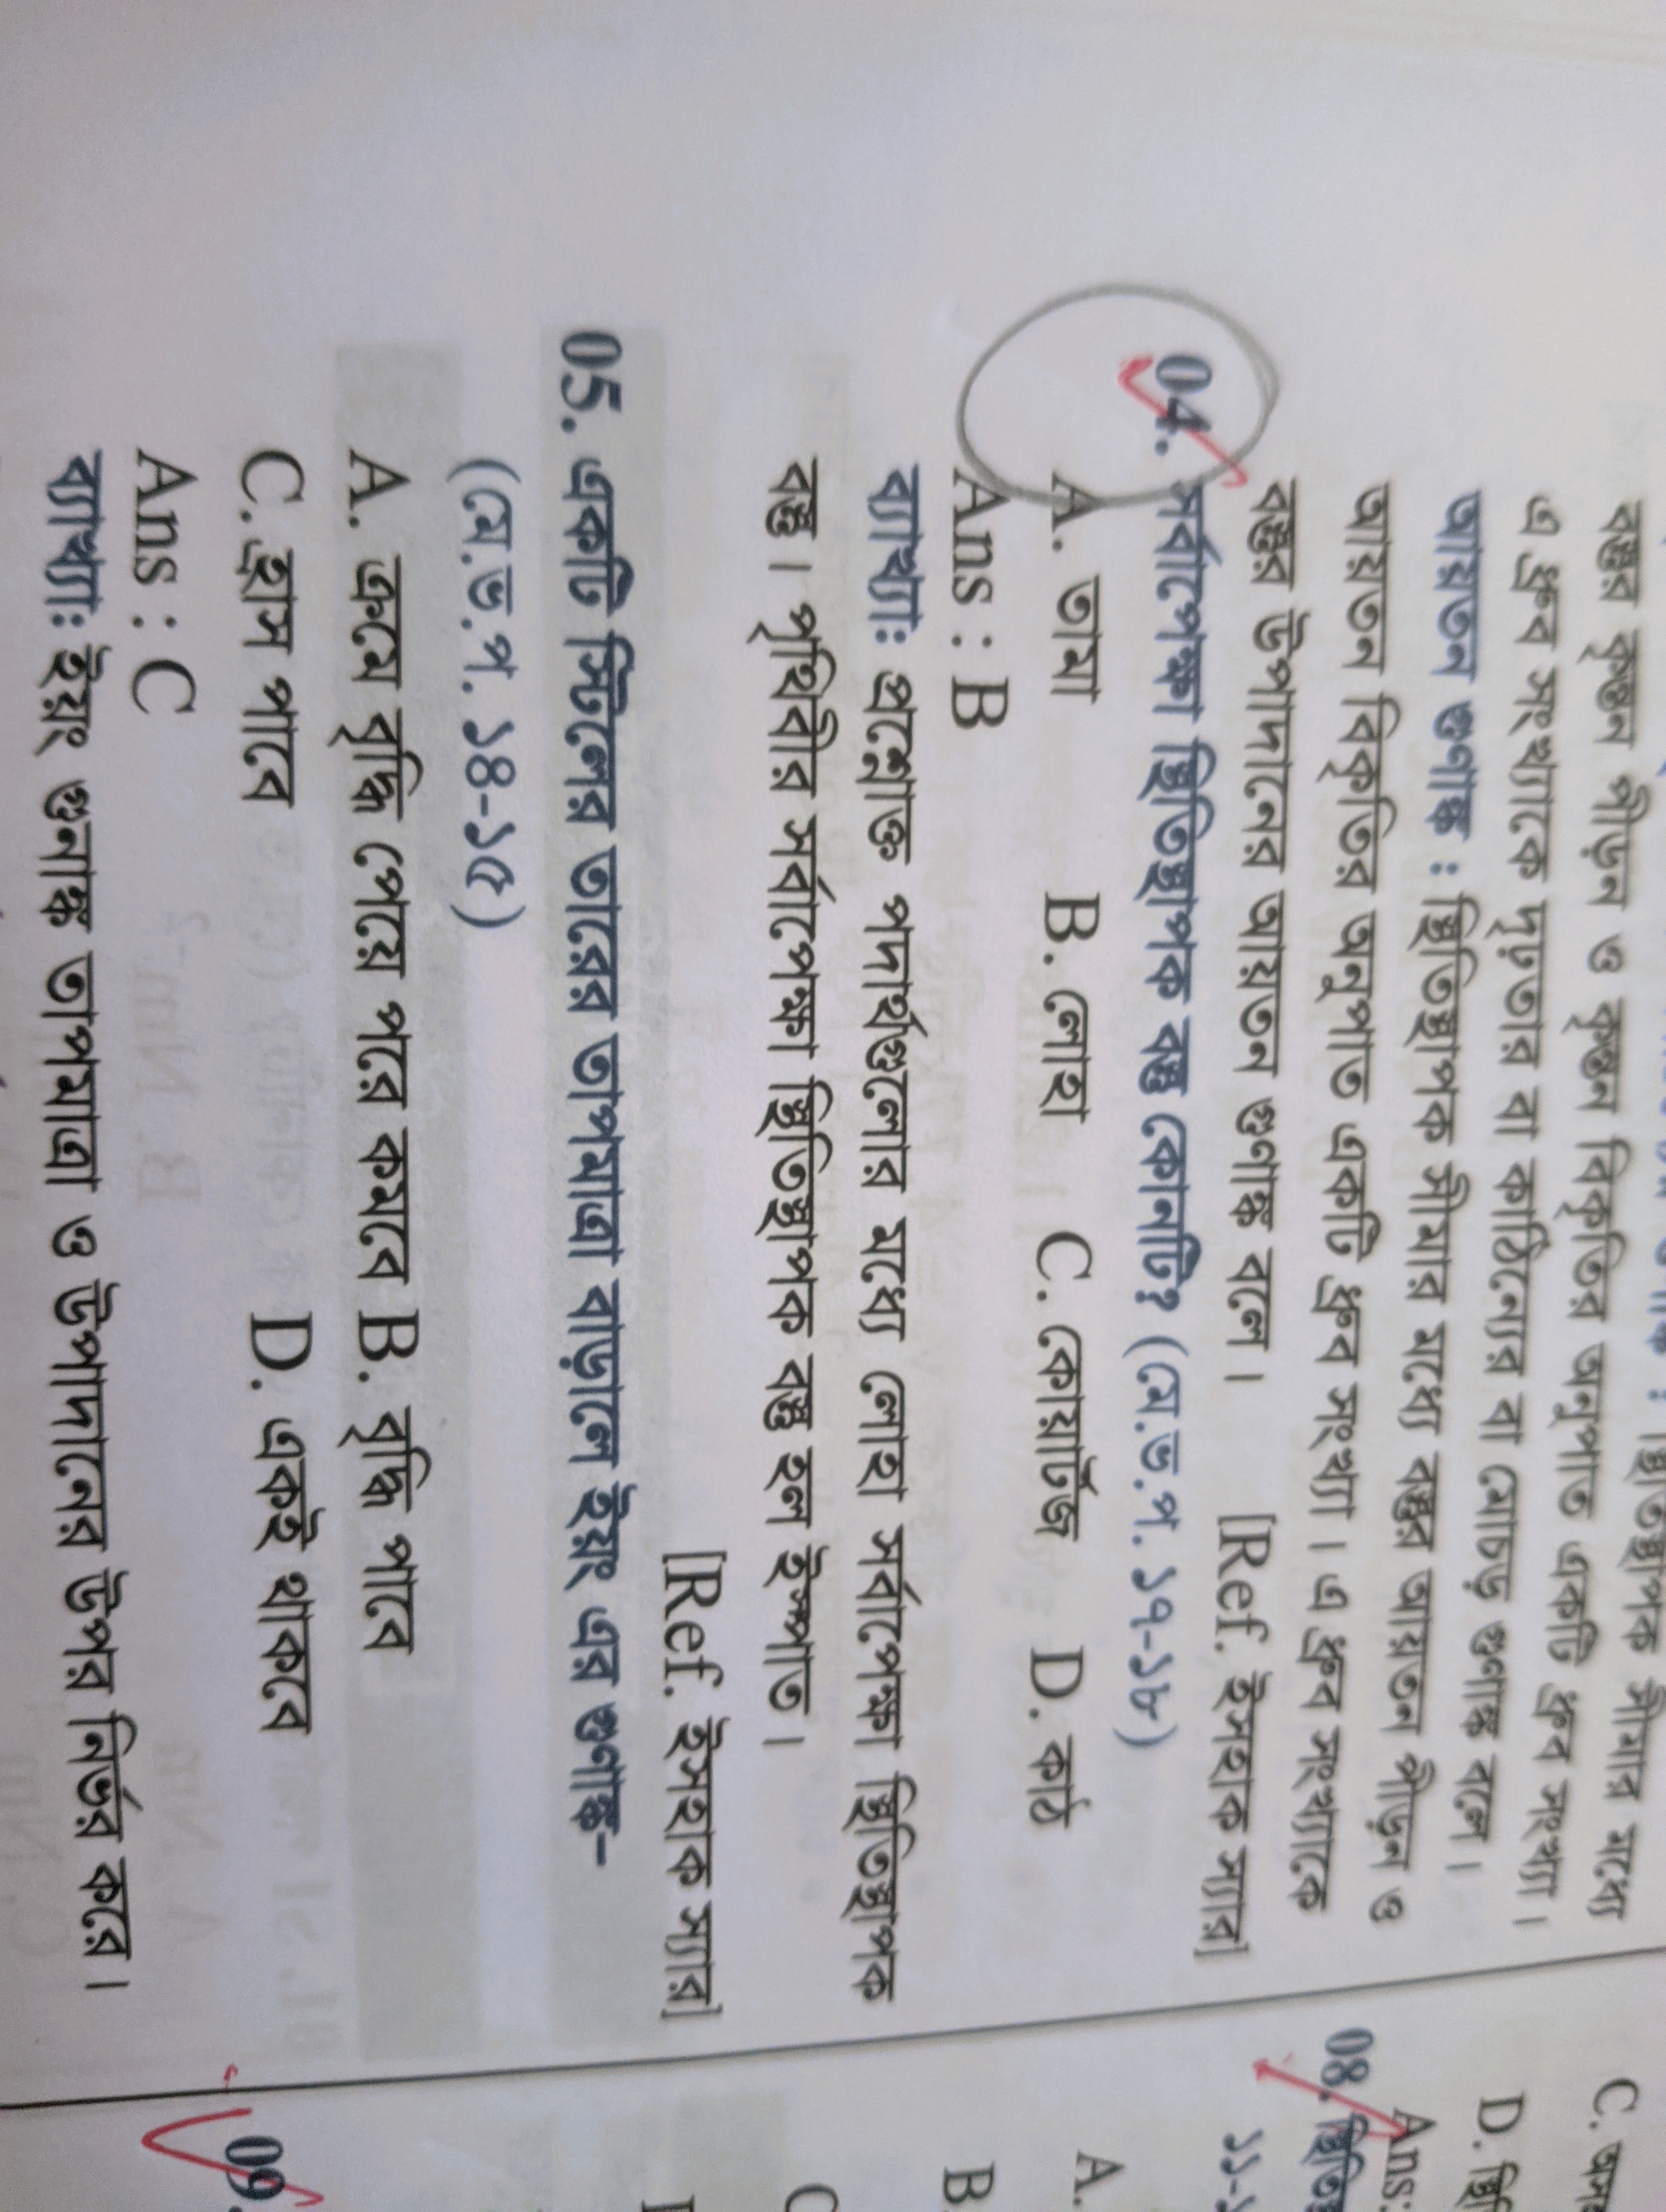 বস্তুর কৃন্তন পীড়ন ও কৃন্তন বিকৃতির অনুপাত একটি ধ্রুব সংখ্যা।
এ ধ্রুব সংখ্যাকে দৃঢ়তার বা কাঠিন্যের বা মোচড় গুণাঙ্ক বলে।
আয়তন গুণাঙ্ক : স্থিতিস্থাপক সীমার মধ্যে বস্তুর আয়তন পীড়ন ও
আয়তন বিকৃতির অনুপাত একটি ধ্রুব সংখ্যা। এ ধ্রুব সংখ্যাকে
বস্তুর উপাদানের আয়তন গুণাঙ্ক বলে। [Ref. ইসহাক স্যার]
04. সর্বাপেক্ষা স্থিতিস্থাপক বস্তু কোনটি? (মে.ভ.প. ১৭-১৮)
A. তামা B. লোহা C. কোয়ার্টজ D. কাঠ
Ans : B
ব্যাখ্যাঃ প্রশ্নোক্ত পদার্থগুলোর মধ্যে লোহা সর্বাপেক্ষা স্থিতিস্থাপক
বস্তু। পৃথিবীর সর্বাপেক্ষা স্থিতিস্থাপক বস্তু হল ইস্পাত।
[Ref. ইসহাক স্যার]
05. একটি স্টিলের তারের তাপমাত্রা বাড়ালে ইয়ং এর গুণাঙ্ক-
(মে.ভ.প. ১৪-১৫)
A. ক্রমে বৃদ্ধি পেয়ে পরে কমবে B. বৃদ্ধি পাবে
C. হ্রাস পাবে D. একই থাকবে
Ans : C
ব্যাখ্যাঃ ইয়ং গুনাঙ্ক তাপমাত্রা ও উপাদানের উপর নির্ভর করে।
C.
D.
Ans:
08.
১১-
A.
B.
C
09.